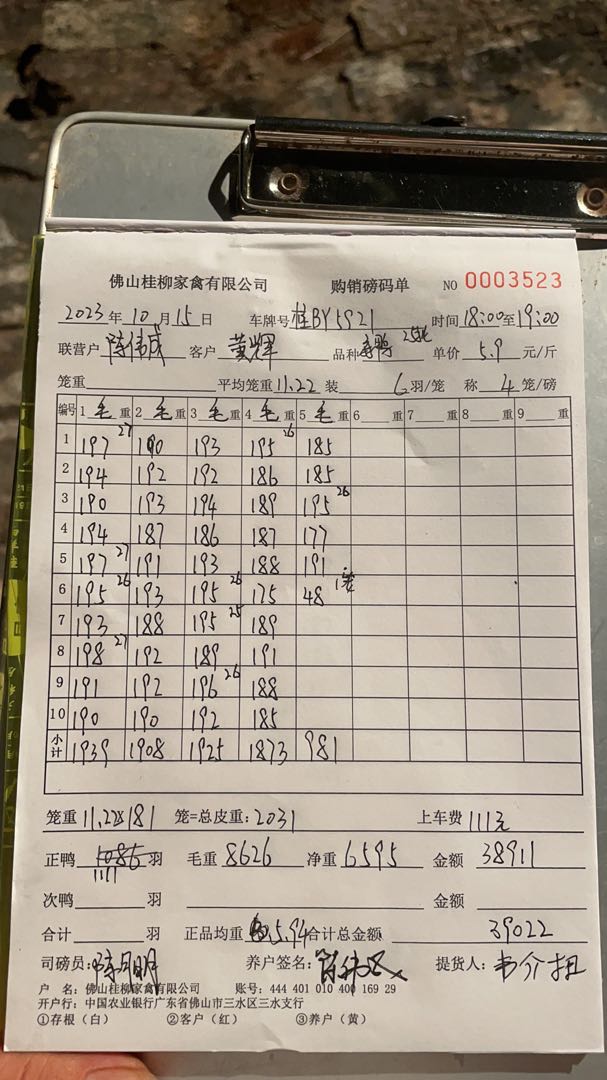 佛山桂柳家禽有限公司 购销磅码单 NO 0003523
2023年10月15日 车牌号 桂BY5921 时间 18:00至19:00
联营户 陈伟成 客户 黄辉 品种 单价 5.9 元/斤
笼重 平均笼重 11.22 装 6 羽/笼 称 4 笼/磅
编号 1 毛 重 2 毛 重 3 毛 重 4 毛 重 5 毛 重 6 重 7 重 8 重 9 重
1 197 27 190 193 195 26 185
2 194 192 192 186 185
3 190 193 194 189 195 26
4 194 187 186 187 177
5 197 27 191 193 188 191
6 195 26 193 195 26 175 48
7 193 188 195 25 189
8 198 27 192 189 191
9 191 192 196 26 188
10 190 190 192 185
小计 1939 1908 1925 1873 981
笼重 11.22X181 笼=总皮重:2031 上车费 111元
正鸭 1086 1111 羽 毛重 8626 净重 6595 金额 38911
次鸭 羽 金额
合计 羽 正品均重 5.94 合计总金额 39022
司磅员: 陈月明 养户签名: 提货人:
户 名: 佛山桂柳家禽有限公司 账号: 444 401 010 400 169 29
开户行: 中国农业银行广东省佛山市三水区三水支行
①存根(白) ②客户(红) ③养户(黄)